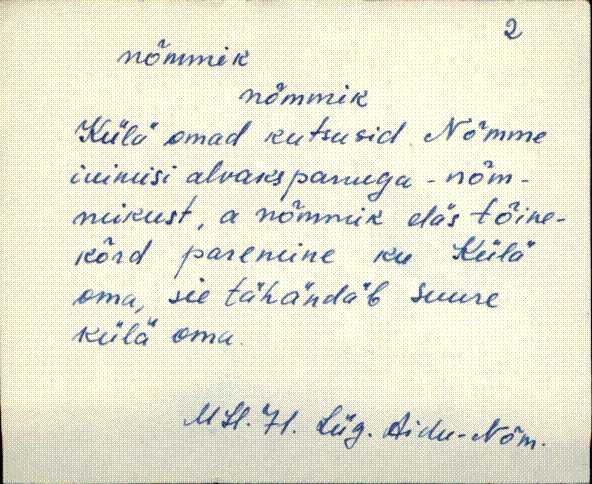 2
nõmmik
nõmmik
Külä omad kutsusid Nõmme
inimisi alvakspanuga - nõm-
mikust, a nõmmik eläs tõine-
kõrd paremine ku Külä
oma, sie tähändäb suure
külä oma.
Lüg. Aidu-Nõm.